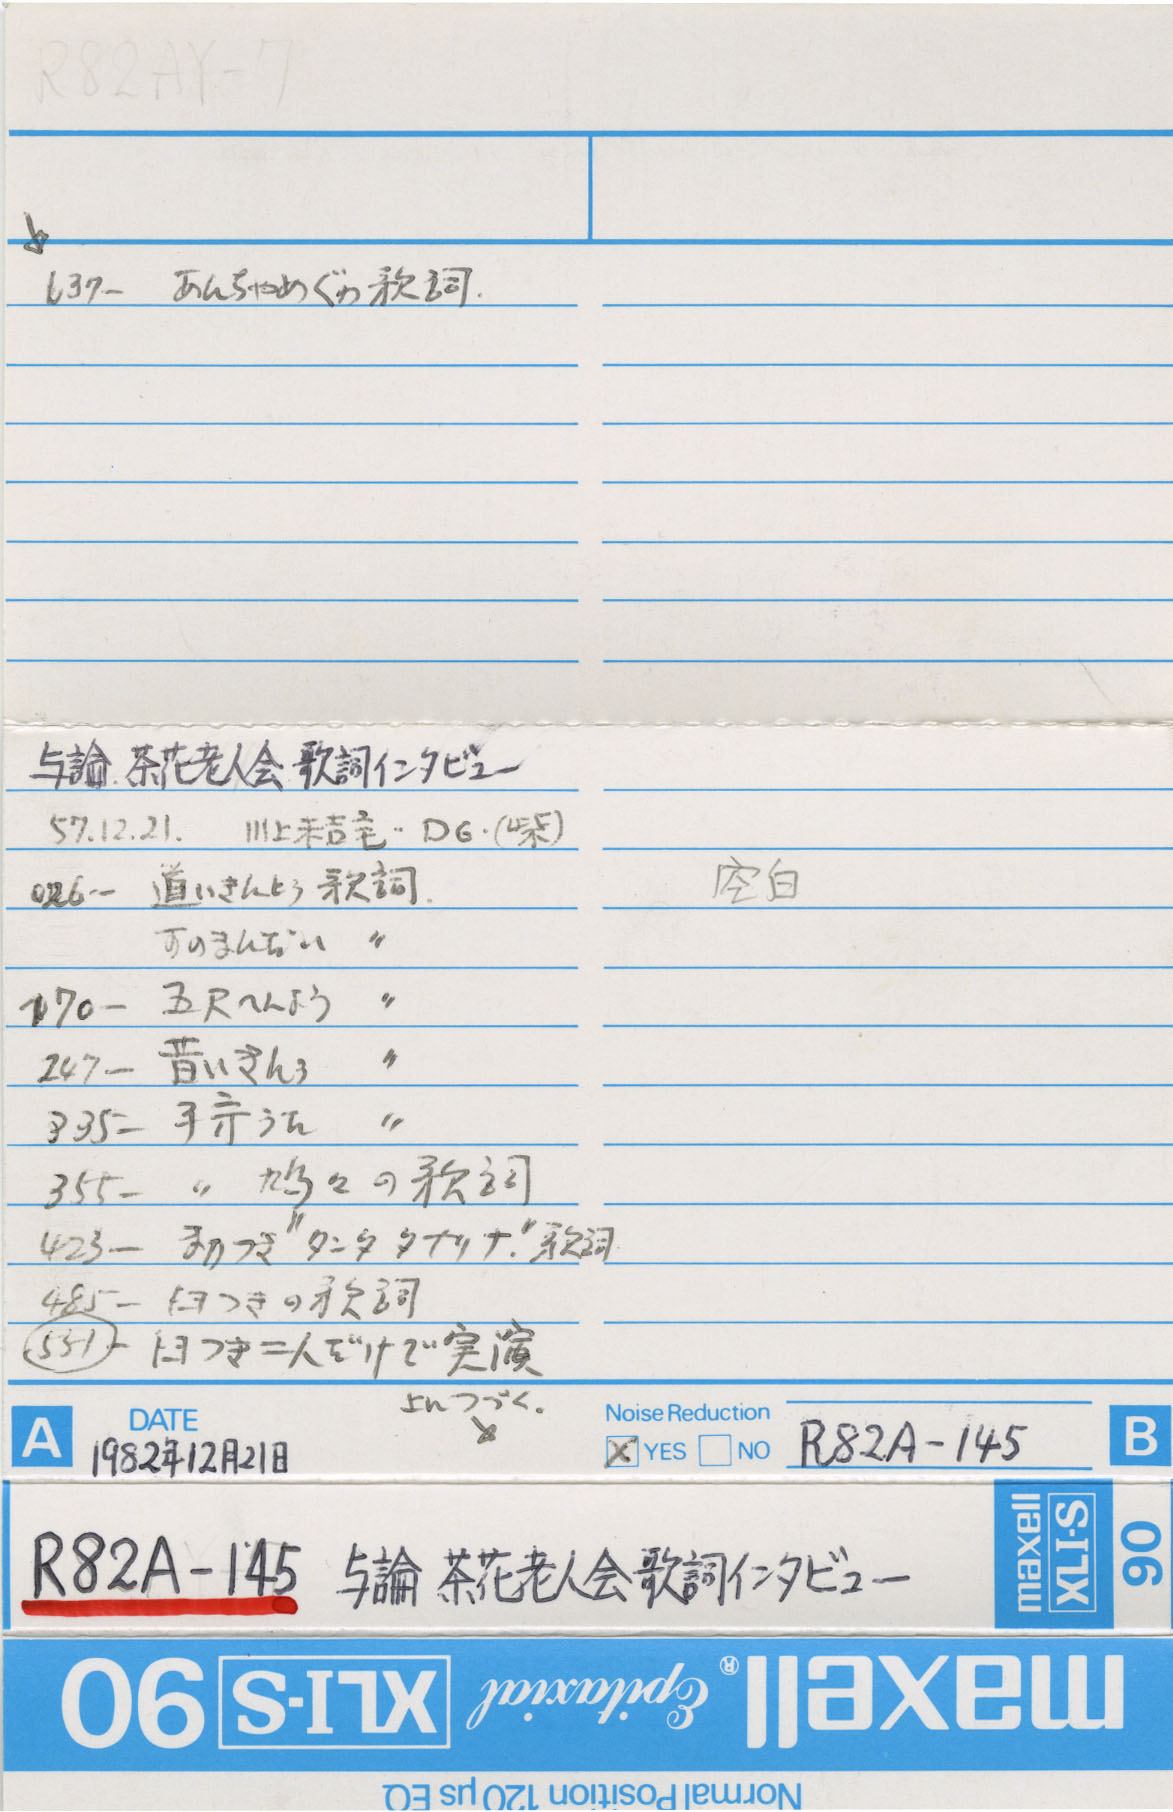 R82AY-7
637- あんちゃめぐゎ 歌詞.
与論 茶花老人会 歌詞インタビュー
57.12.21. 川上末吉宅・DG・(柴)
026- 道いきんとぅ 歌詞.
〃
170- 五尺へんよう 〃
247- 昔いきんとぅ 〃
335- 手まりうた 〃
355- 〃 鳩々の歌詞
423- まりつき "タンタタナリナ." 歌詞
485- 臼つきの歌詞
551- 臼つき二人だけで実演
上へつづく.
空白
A DATE 1982年12月21日
Noise Reduction YES NO R82A-145 B
R82A-145 与論 茶花老人会 歌詞インタビュー maxell XLI-S 90
maxell® Epitaxial XLI-S 90
Normal Position 120 µs EQ